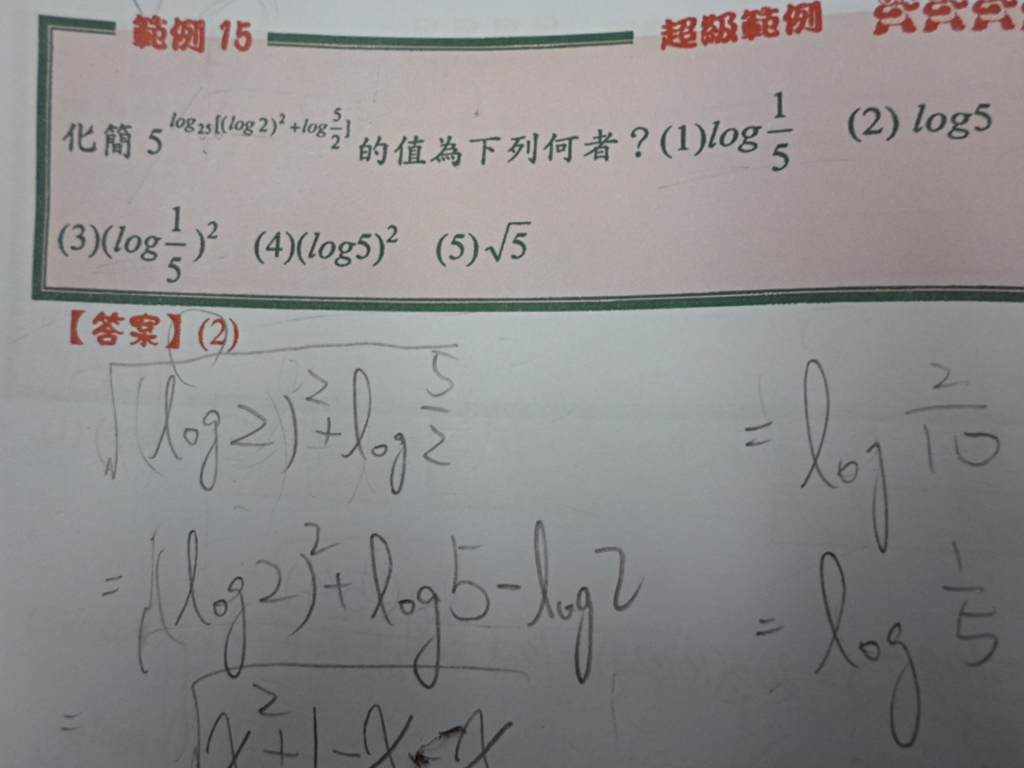 範例 15 超級範例
化簡 5^{log_{25}[(log2)^2+log\frac{5}{2}]} 的值為下列何者?(1)log\frac{1}{5} (2) log5
(3)(log\frac{1}{5})^2 (4)(log5)^2 (5)√5
【答案】(2)
√((log2)^2+log\frac{5}{2})
= √((log2)^2+log5-log2)
= √(x^2+1-x-x)
= log\frac{2}{10}
= log\frac{1}{5}